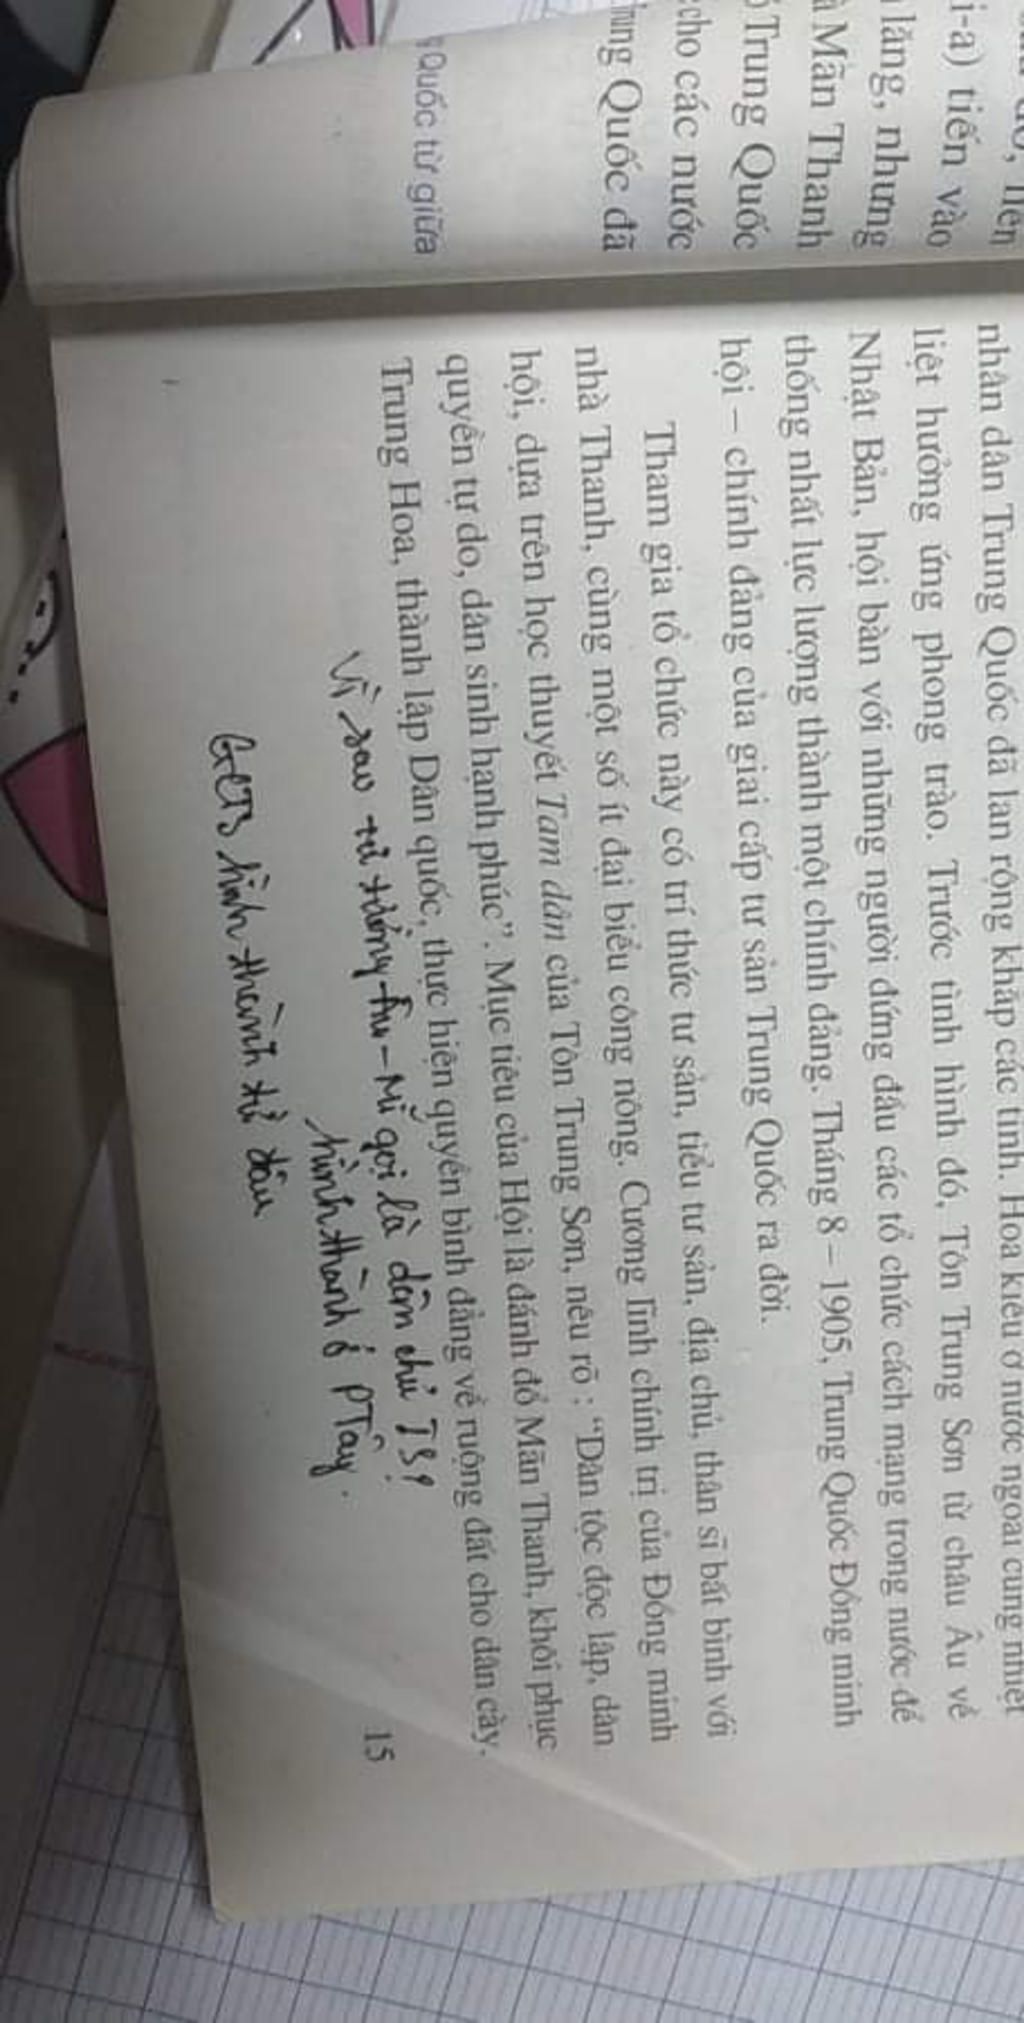 i-a) tiến vào
lăng, nhưng
Mãn Thanh
Trung Quốc
cho các nước
Quốc đã
Quốc từ giữa
nhân dân Trung Quốc đã lan rộng khắp các tỉnh. Hoa kiều ở nước ngoài cũng nhiệt
liệt hưởng ứng phong trào. Trước tình hình đó, Tôn Trung Sơn từ châu Âu về
Nhật Bản, hội bàn với những người đứng đầu các tổ chức cách mạng trong nước để
thống nhất lực lượng thành một chính đảng. Tháng 8 – 1905, Trung Quốc Đồng minh
hội – chính đảng của giai cấp tư sản Trung Quốc ra đời.
Tham gia tổ chức này có trí thức tư sản, tiểu tư sản, địa chủ, thân sĩ bất bình với
nhà Thanh, cùng một số ít đại biểu công nông. Cương lĩnh chính trị của Đồng minh
hội, dựa trên học thuyết Tam dân của Tôn Trung Sơn, nêu rõ : “Dân tộc độc lập, dân
quyền tự do, dân sinh hạnh phúc”. Mục tiêu của Hội là đánh đổ Mãn Thanh, khôi phục
Trung Hoa, thành lập Dân quốc, thực hiện quyền bình đẳng về ruộng đất cho dân cày.
Vì sao tư tưởng Âu-Mĩ gọi là dân chủ TS?
hình thành ở PTây.
GCTS hình thành từ đâu
15